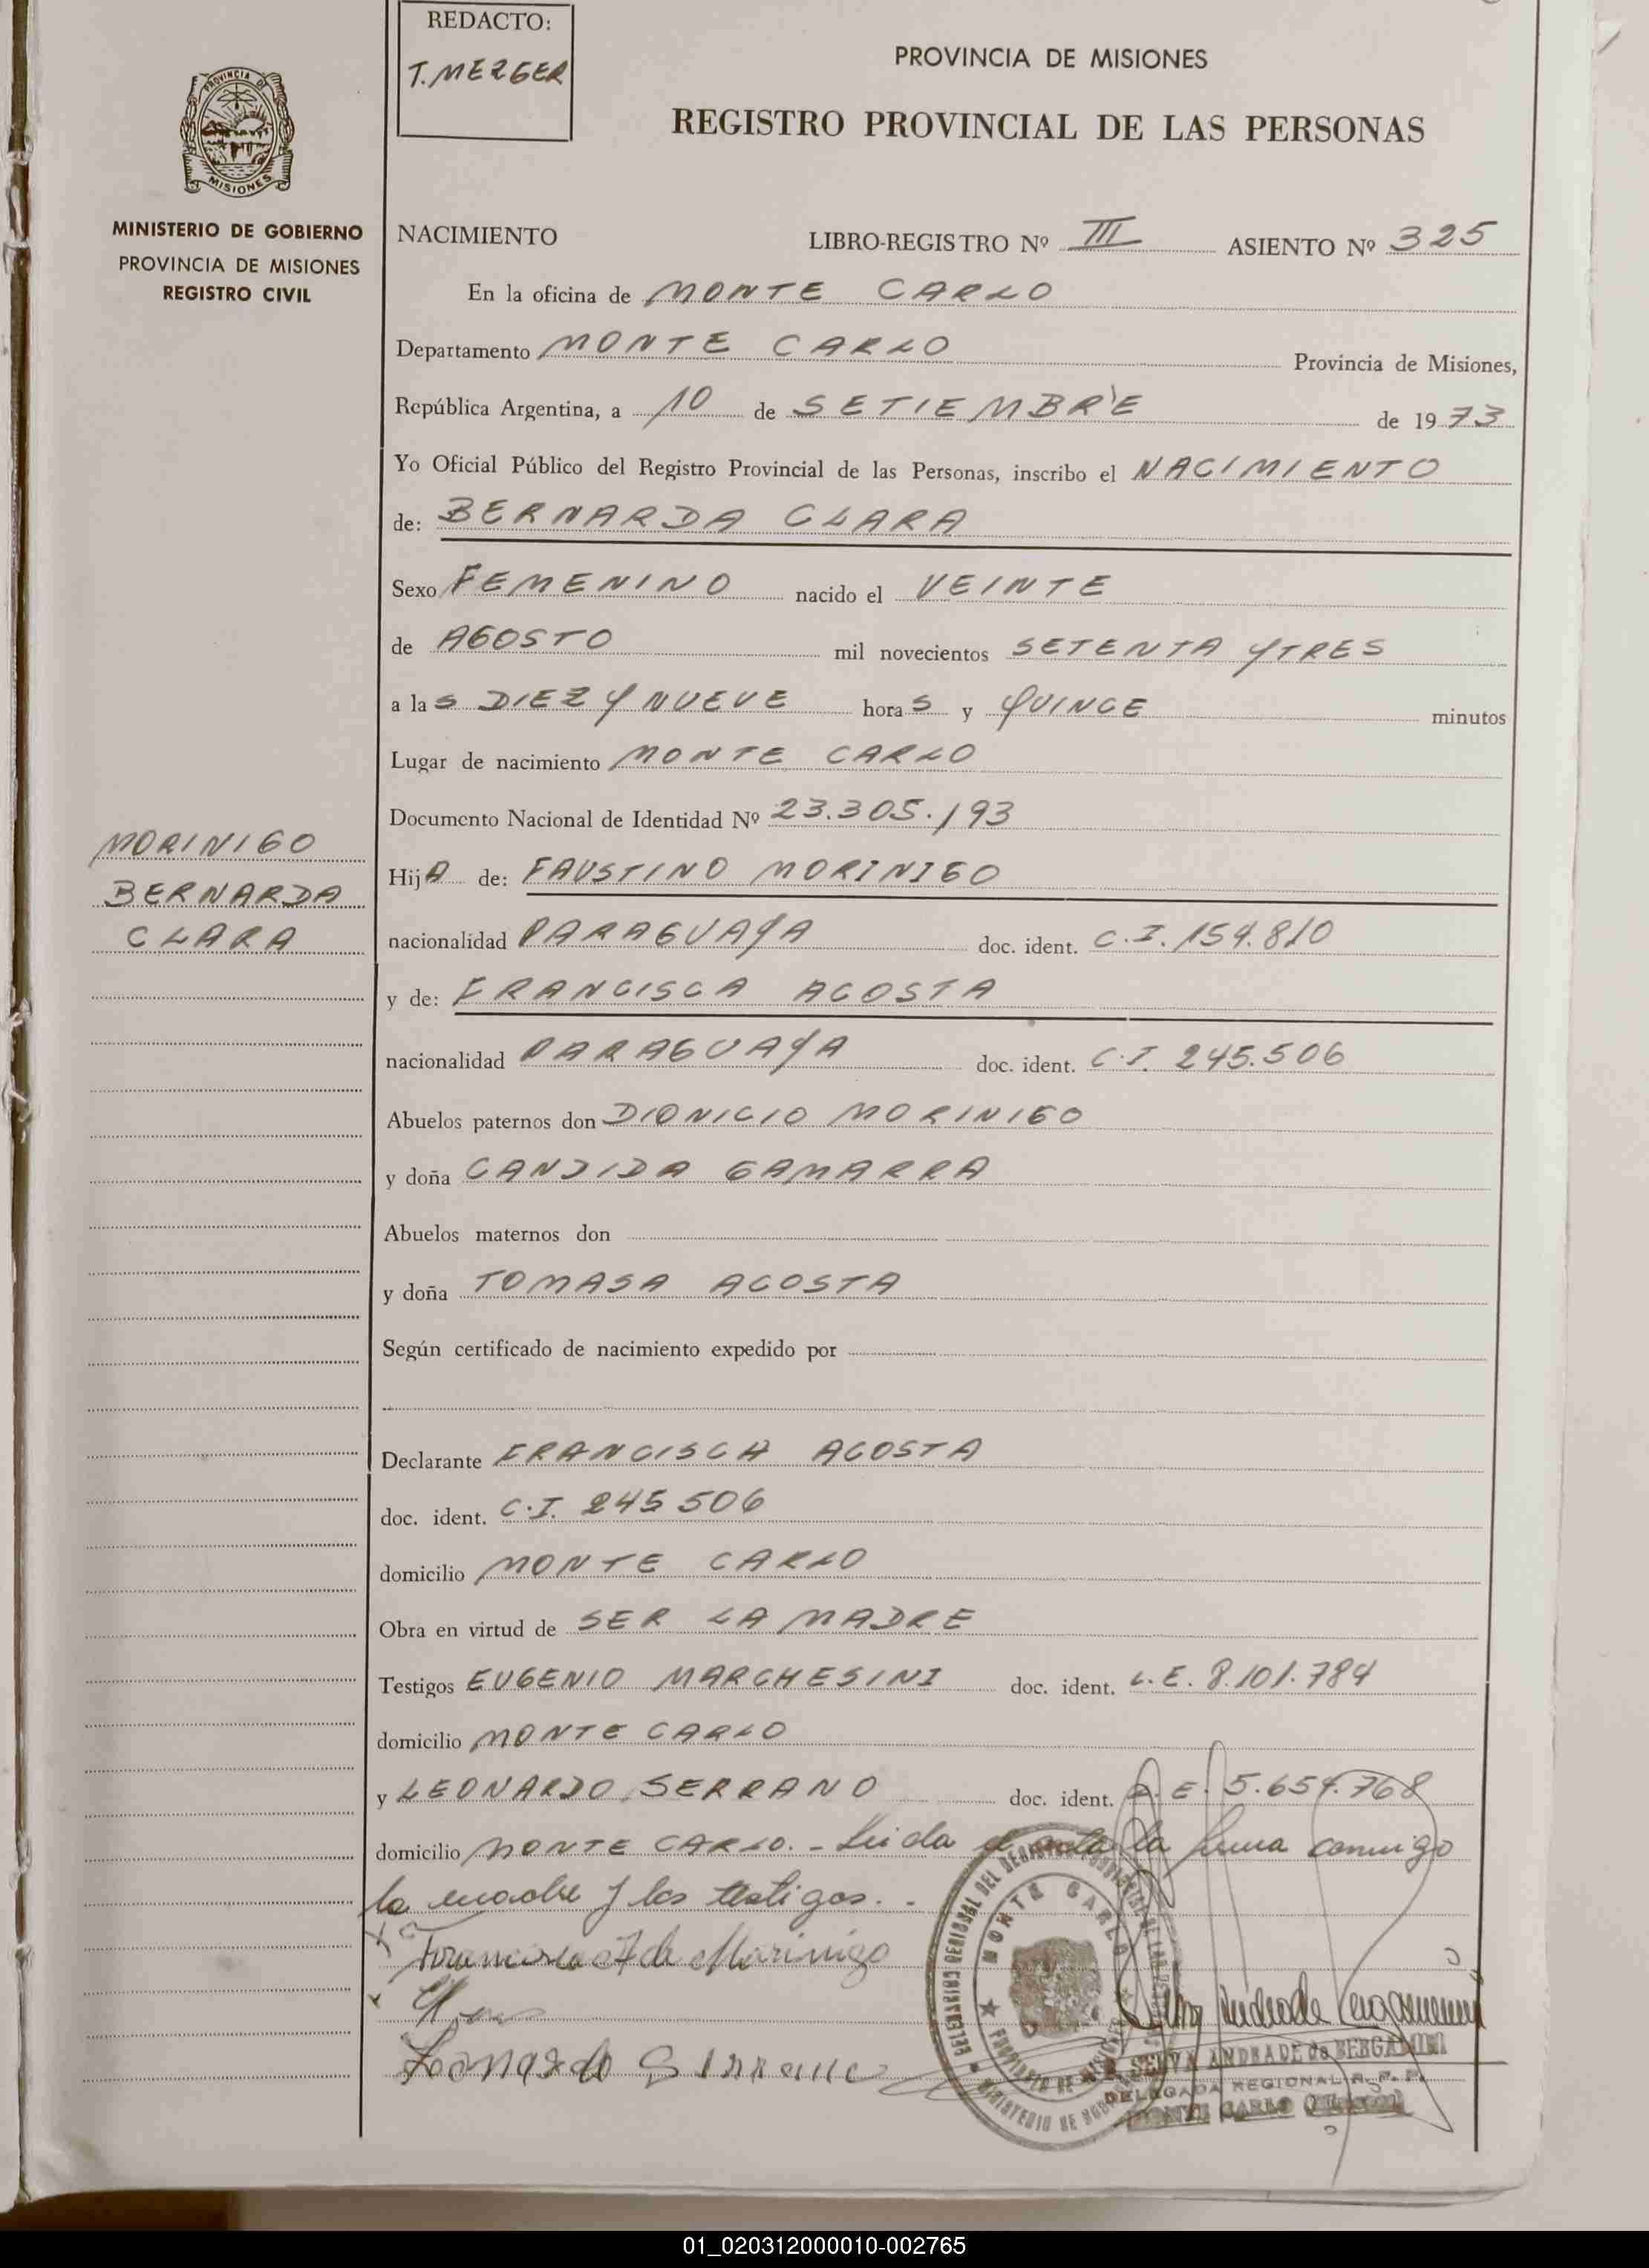 REDACTO:
T. MEZGER
PROVINCIA DE MISIONES
REGISTRO PROVINCIAL DE LAS PERSONAS
PROVINCIA DE
MISIONES
MINISTERIO DE GOBIERNO
PROVINCIA DE MISIONES
REGISTRO CIVIL
NACIMIENTO LIBRO-REGISTRO Nº III ASIENTO Nº 325
En la oficina de MONTE CARLO
Departamento MONTE CARLO Provincia de Misiones,
República Argentina, a 10 de SETIEMBRE de 1973
Yo Oficial Público del Registro Provincial de las Personas, inscribo el NACIMIENTO
de: BERNARDA CLARA
Sexo FEMENINO nacido el VEINTE
de AGOSTO mil novecientos SETENTA Y TRES
a las DIEZ Y NUEVE horas y QUINCE minutos
Lugar de nacimiento MONTE CARLO
Documento Nacional de Identidad Nº 23.305.193
MORINIGO
BERNARDA
CLARA
HijA de: FAUSTINO MORINIGO
nacionalidad PARAGUAYA doc. ident. C.I. 154.810
y de: FRANCISCA ACOSTA
nacionalidad PARAGUAYA doc. ident. C.I. 245.506
Abuelos paternos don DIONICIO MORINIGO
y doña CANDIDA GAMARRA
Abuelos maternos don
y doña TOMASA ACOSTA
Según certificado de nacimiento expedido por
Declarante FRANCISCA ACOSTA
doc. ident. C.I. 245 506
domicilio MONTE CARLO
Obra en virtud de SER LA MADRE
Testigos EUGENIO MARCHESINI doc. ident. L.E. 8.101.784
domicilio MONTE CARLO
y LEONARDO SERRANO doc. ident. L.E. 5.654.768
domicilio MONTE CARLO. - Leida el acta la firma conmigo
la madre y los testigos. -
Francisca A de Morinigo
Leonardo Serrano
MONTE CARLO
SELVA ANDRADE de BERGAMINI
DELEGADA REGIONAL R. P. P.
MONTE CARLO
01_020312000010-002765